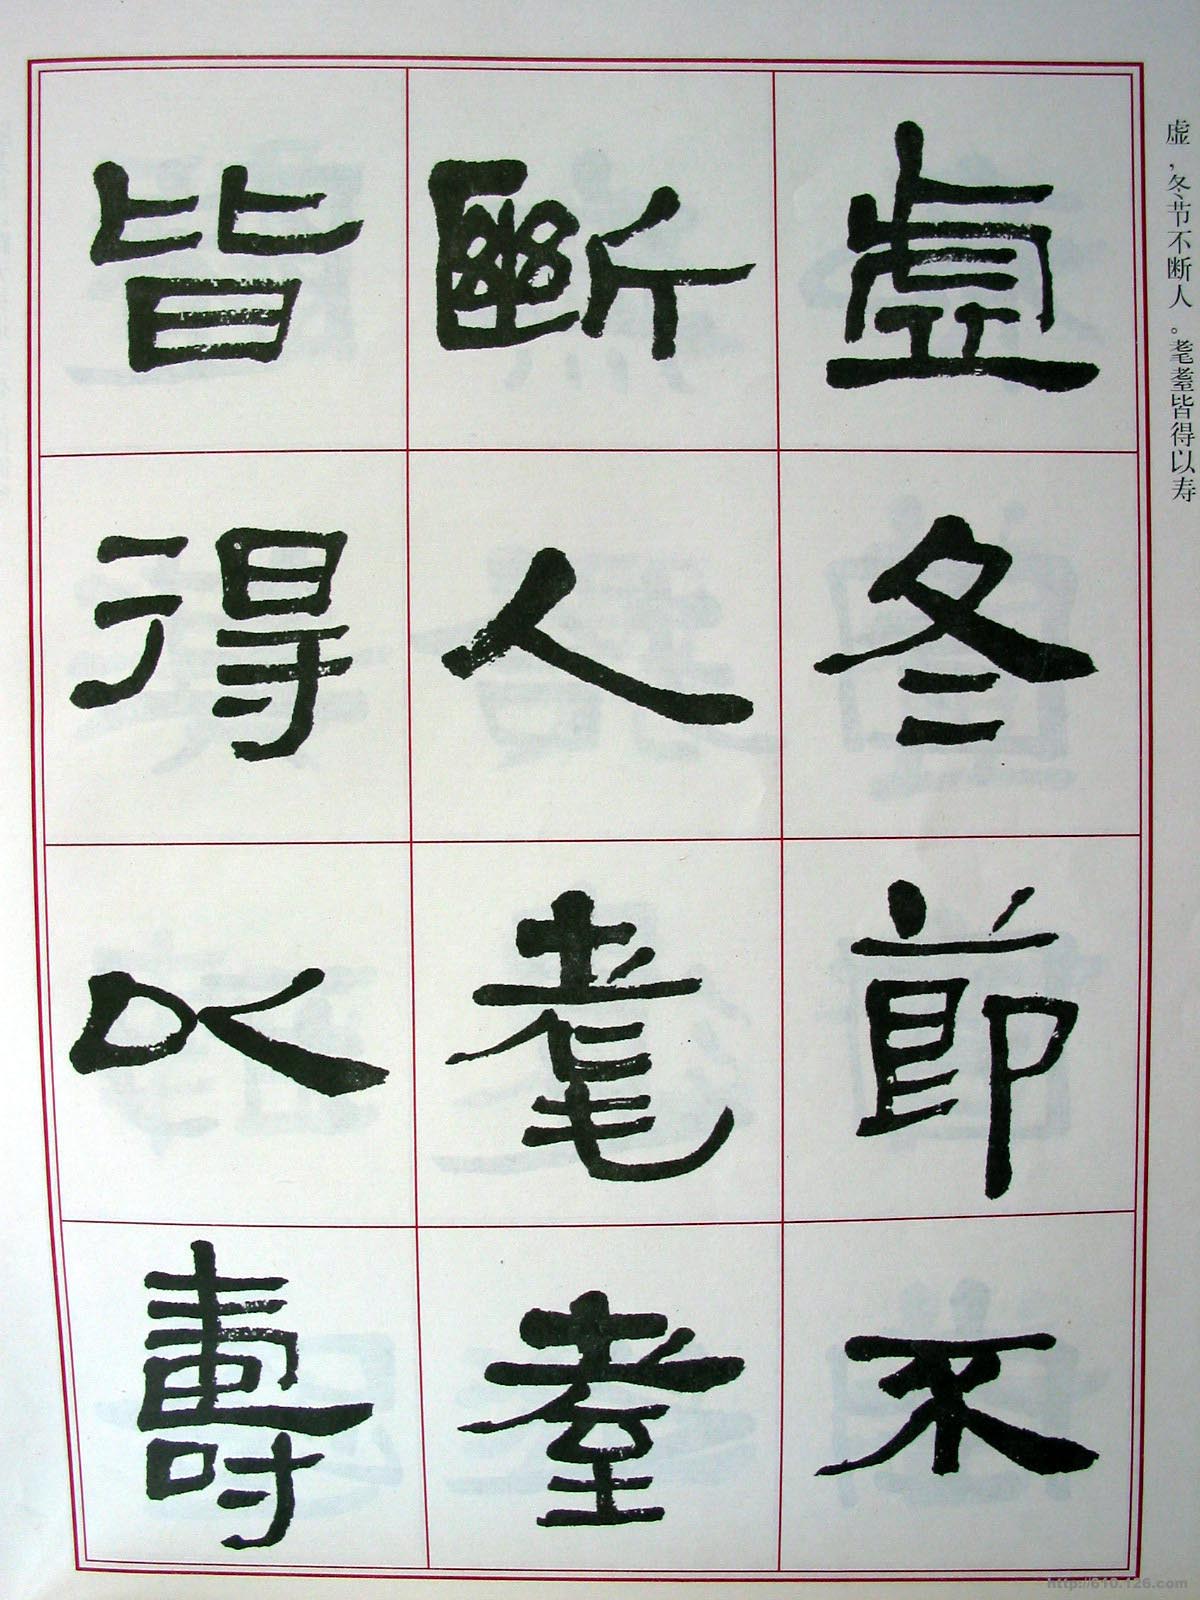 虚，冬节不断人。耄耋皆得以寿
虛冬節不
斷人耄耋
皆得以壽
http://610.126.com